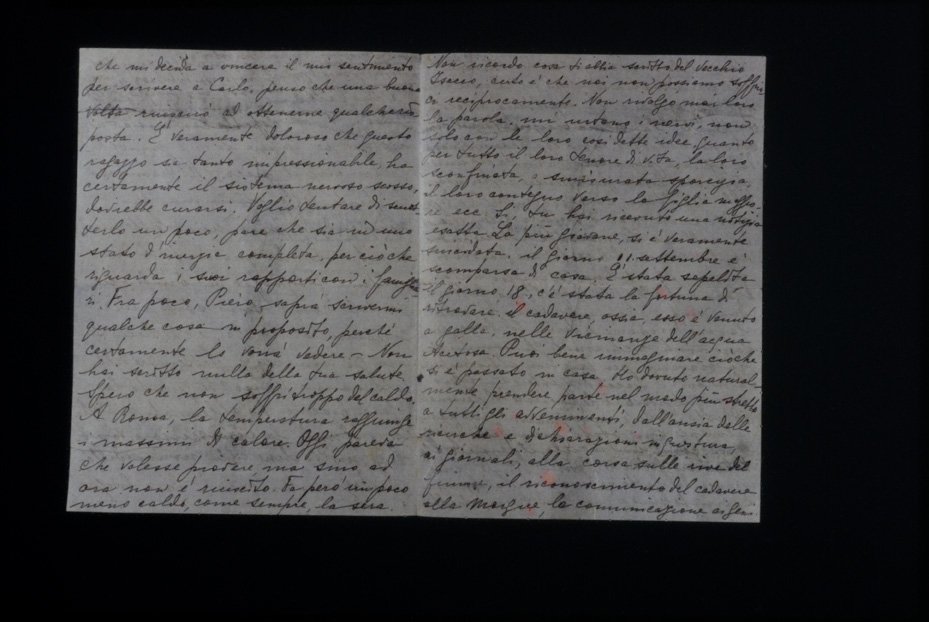 che mi decida a vincere il mio sentimento
per scrivere a Carlo, penso che una buona
volta riuscirò ad ottenerne qualche ris-
posta. E' veramente doloroso che questo
ragazzo sia tanto impressionabile, ha
certamente il sistema nervoso scosso,
dovrebbe curarsi. Voglio tentare di
terlo un poco, pare che sia in uno
stato d'inerzia completa, per ciò che
riguarda i suoi rapporti con i famiglia
ri. Fra poco, Piero saprà scrivermi
qualche cosa in proposito, perché
certamente lo vorrà vedere – Non
hai scritto nulla della tua salute.
Spero che non soffri troppo del caldo.
A Roma, la temperatura raggiunge
i massimi di calore. Oggi pareva
che volesse piovere ma sino ad
ora non è riuscito. Fa però un poco
meno caldo, come sempre, la sera.
Non ricordo cosa ti abbia scritto del vecchio
Isacco, certo è che noi non possiamo soffrir-
ci reciprocamente. Non rivolgo mai loro
la parola, mi urtano i nervi, non
solo con le loro cosidette idee quanto
per tutto il loro tenore di vita, la loro
sconfinata, smisurata
il loro contegno verso la figlia
ecc. Sì, tu hai ricevuto una notizia
esatta. La più giovane, si è veramente
suicidata, il giorno 11 settembre è
scomparsa di casa. E' stata sepellita
il giorno 18, c'è stata la fortuna di
ritrovare il cadavere, ossia, esso è venuto
a galla, nelle vicinanze dell'acqua
Acetosa. Puoi bene immaginare ciò che
si è passato in casa. Ho dovuto natural-
mente, prendere parte nel modo più stretto
a tutti gli avvenimenti, dall'ansia delle
ricerche e dichiarazioni in questura
ai giornali, alla corsa sulle rive del
fiume, il riconoscimento del cadavere
alla Morgue, la comunicazione ai geni